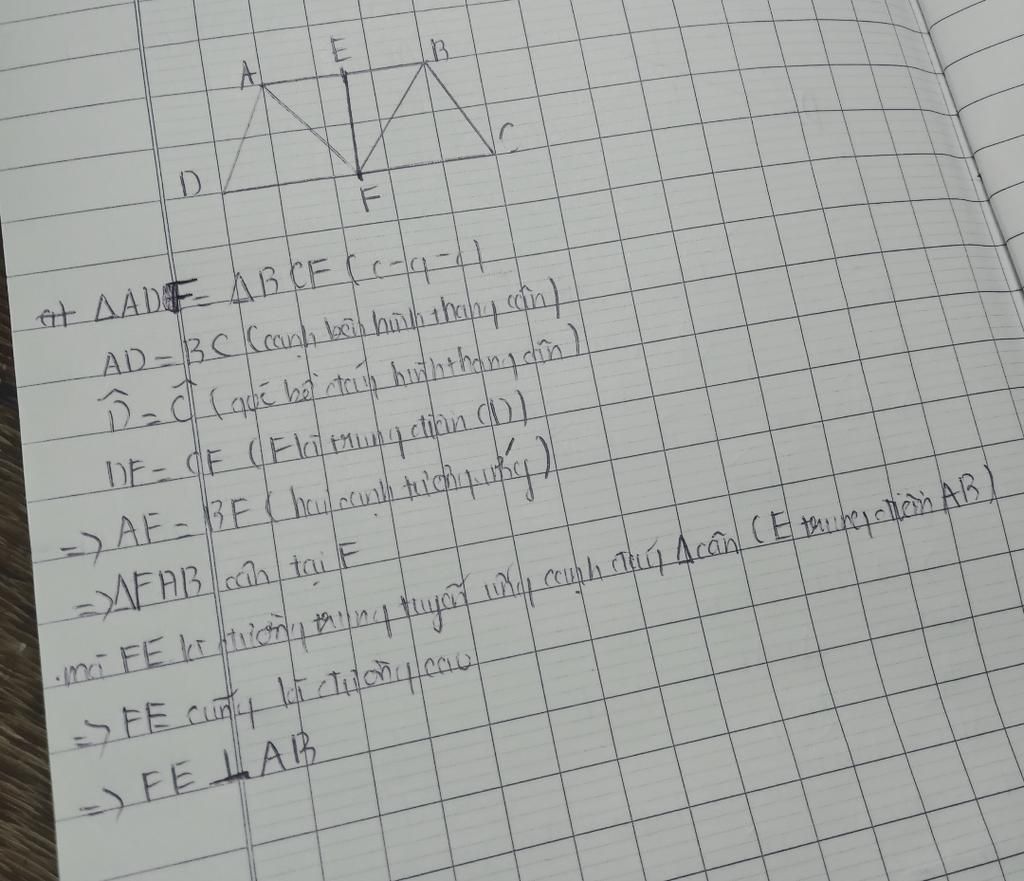 E
A B
D F C
ΔADF = ΔBCF (c-g-c)
AD = BC (cạnh bên hình thang cân)
D̂ = Ĉ (góc kề đáy hình thang cân)
DF = CF (F là trung điểm CD)
=> AF = BF (hai cạnh tương ứng)
=> ΔFAB cân tại F
.mà FE là đường trung tuyến ứng cạnh đáy Δ cân (E trung điểm AB)
=> FE cũng là đường cao
=> FE ⊥ AB